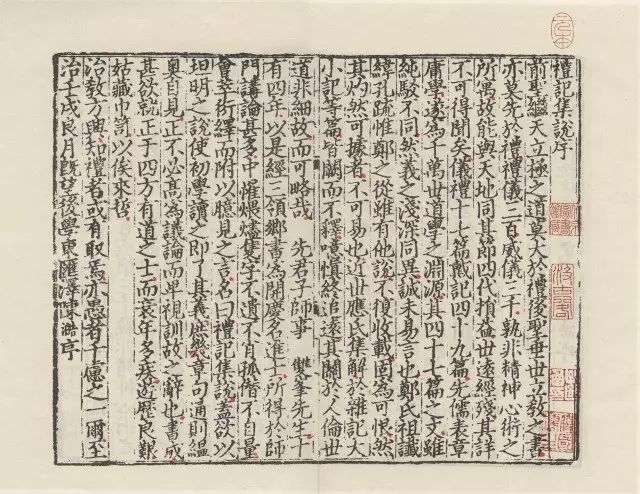 禮記集說序
前聖繼天立極之道莫大於禮後聖垂世立教之書
亦莫先於禮禮儀三百威儀三千孰非精神心術之
所寓故能與天地同其節四代損益世遠經殘其詳
不可得聞矣儀禮十七篇戴記四十九篇先儒表章
庸學遂為千萬世道學之淵源其四十七篇之文雖
純駁不同然義之淺深同異誠未易言也鄭氏祖讖
緯孔疏惟鄭之從雖有他說不復收載固為可恨然
其灼然可據者不可易也近世應氏集解於雜記大
小記等篇皆闕而不釋噫慎終追遠其關於人倫世
道非細故而可略哉 先君子師事 雙峯先生十
有四年以是經三領鄉書為開慶名進士所得於師
門講論甚多中罹煨燼隻字不遺不肖孤僭不自量
會萃衍繹而附以臆見之言名曰禮記集說蓋欲以
坦明之說使初學讀之即了其義庶幾章句通則縕
奧自見正不必高為議論而卑視訓故之辭也書成
甚欲就正于四方有道之士而衰年多疾遊歷良艱
姑藏巾笥以俟來哲
治教方興知禮者或有取焉亦愚者千慮之一爾至
治壬戌良月既望後學東匯澤陳澔序